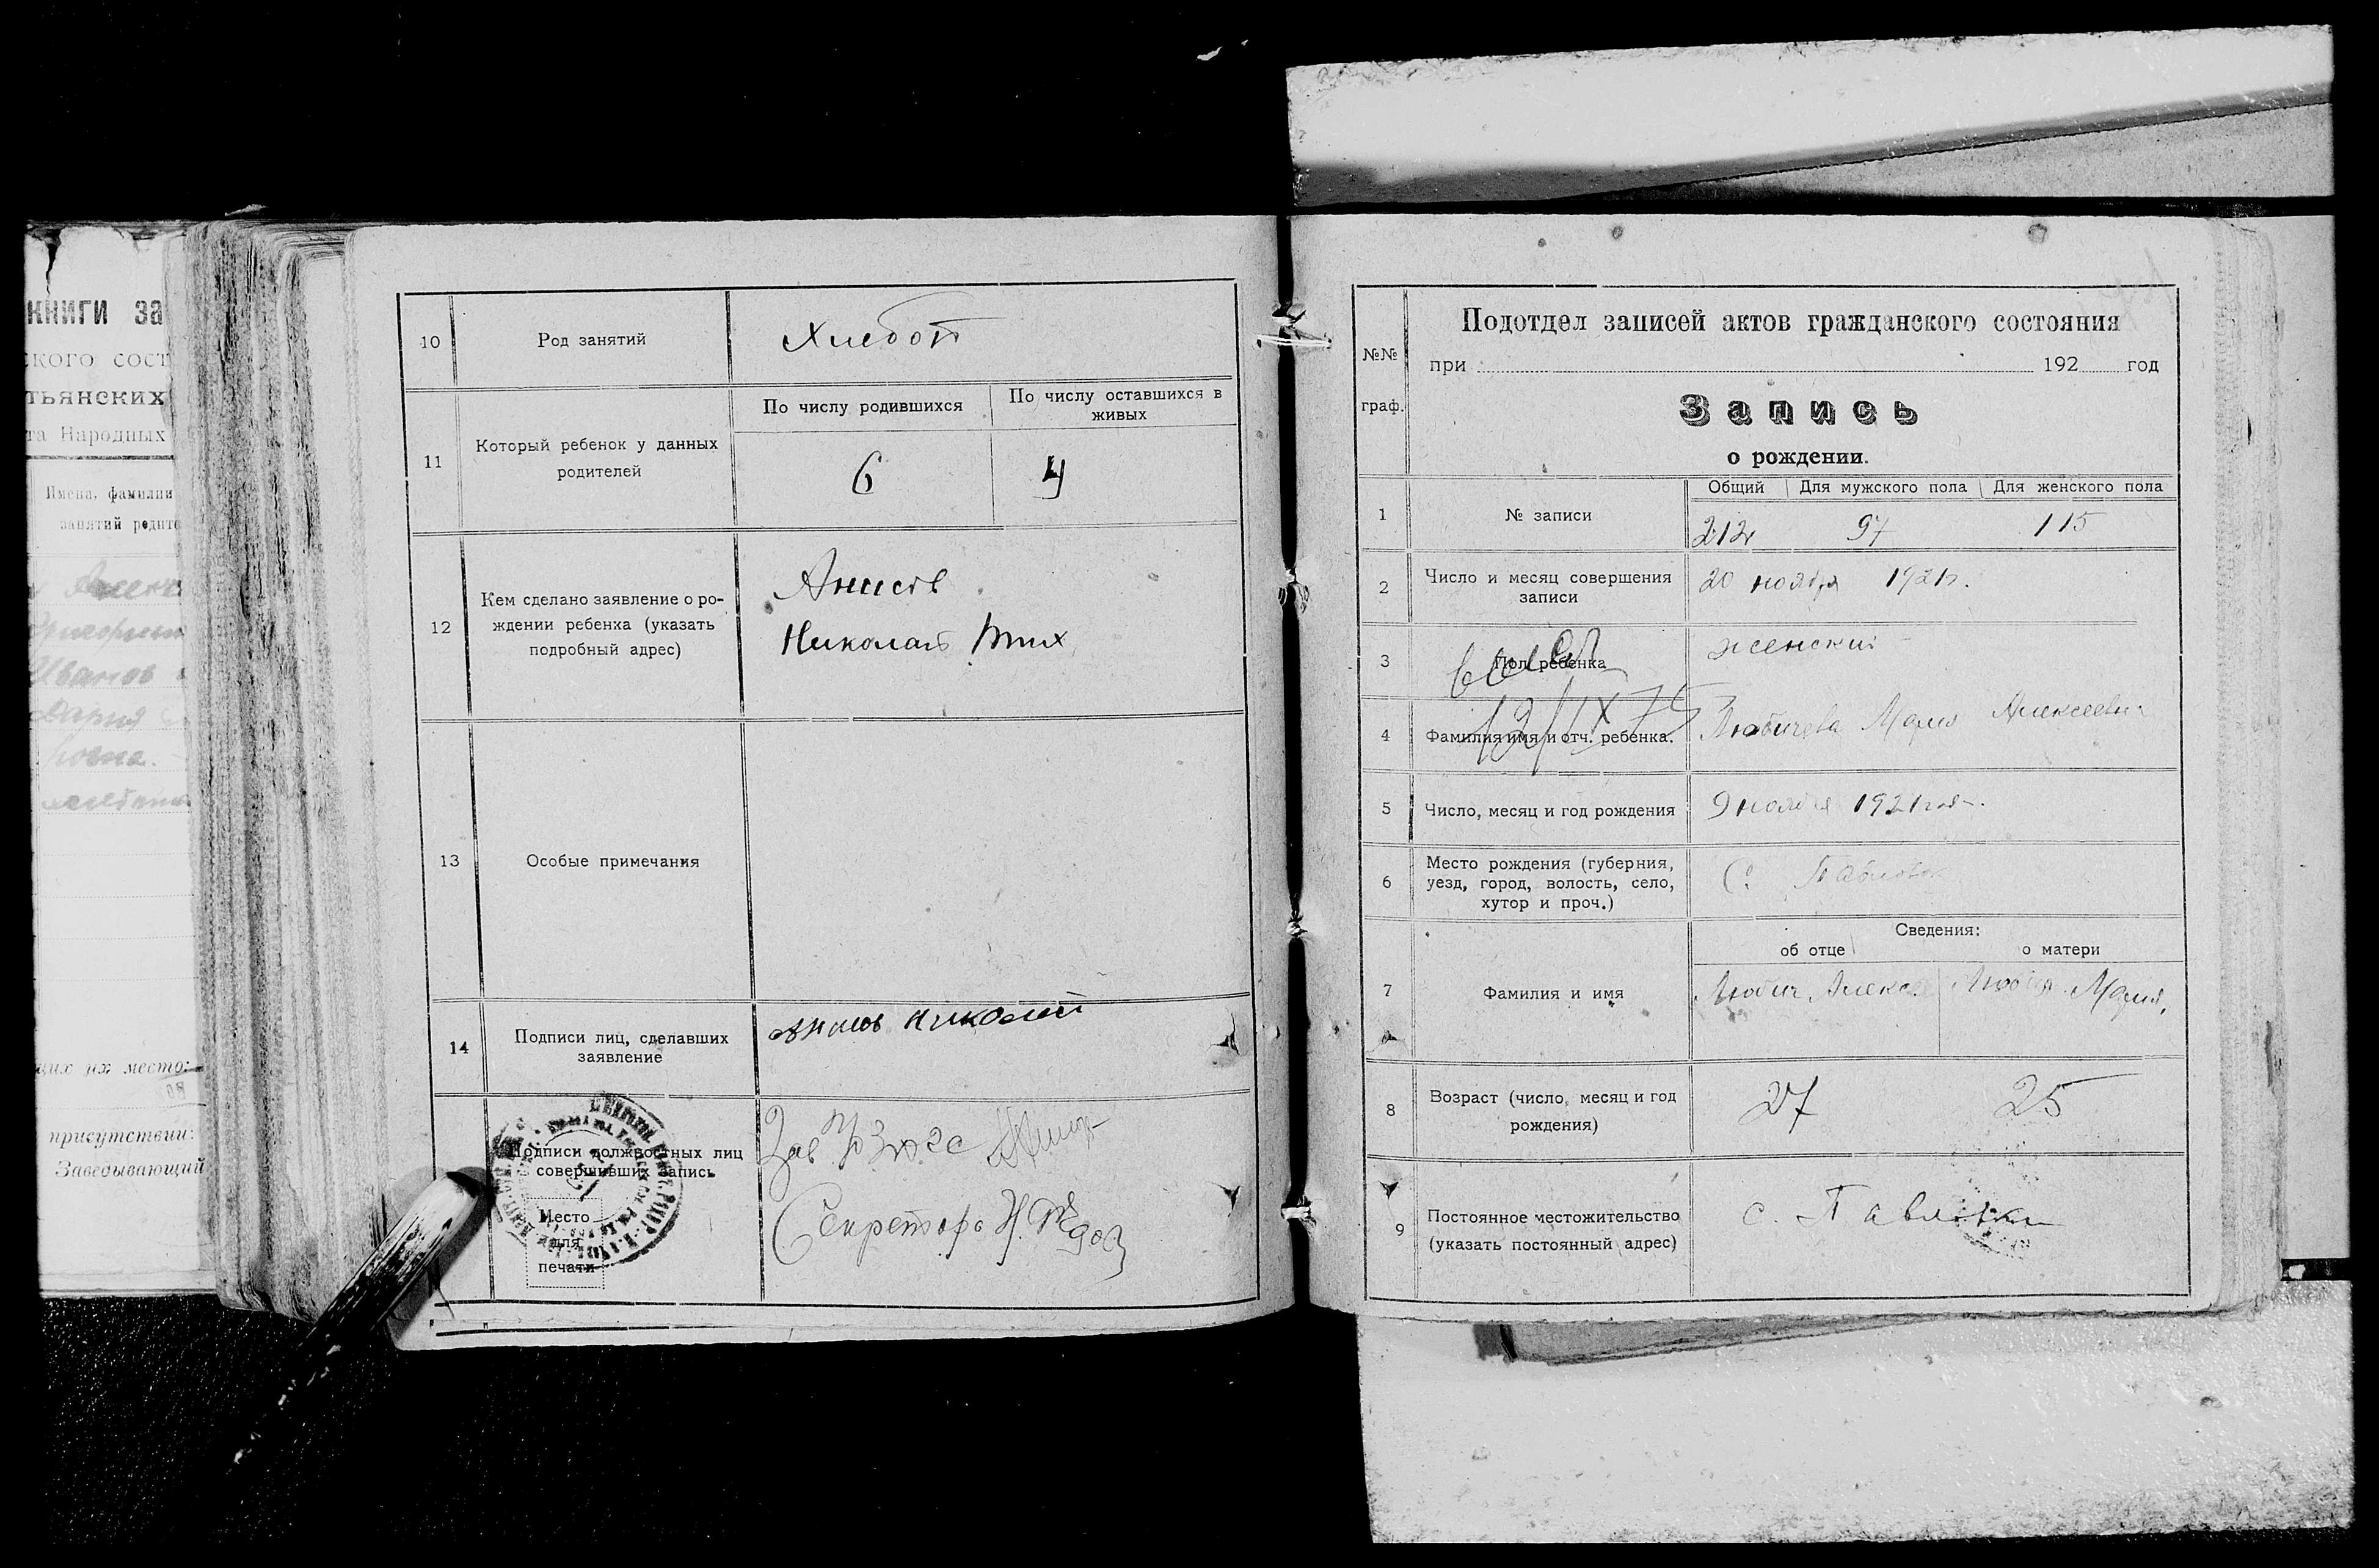 книги за
ского сост
тьянских
та Народных
Имена, фамилии
занятий родите
Иванов
Дария
щих их место:
присутствии:
Заведывающий
10 Род занятий Хлебоп
11 Который ребенок у данных
родителей
По числу родившихся
По числу оставшихся в
живых
6 4
12 Кем сделано заявление о ро-
ждении ребенка (указать
подробный адрес)
Николай Тих
13 Особые примечания
14 Подписи лиц, сделавших
заявление
Николай
Подписи должностных лиц
совершивших запись
Место
для
печати
Зав
Секретарь Н.
№№
граф.
Подотдел записей актов гражданского состояния
при 192 год
Запись
о рождении.
1 № записи
Общий Для мужского пола Для женского пола
212 97 115
2 Число и месяц совершения
записи
20 ноября 1921г.
3 Пол ребенка
женский
12/IX 75
4 Фамилия имя и отч. ребенка.
Любичева Мария Алексеевн
5 Число, месяц и год рождения
9 ноября 1921 год.
6 Место рождения (губерния,
уезд, город, волость, село,
хутор и проч.)
С. Павловк
Сведения:
об отце о матери
7 Фамилия и имя
Любич Алекс. Любич. Мария.
8 Возраст (число, месяц и год
рождения)
27 25
9 Постоянное местожительство
(указать постоянный адрес)
с. Павловки